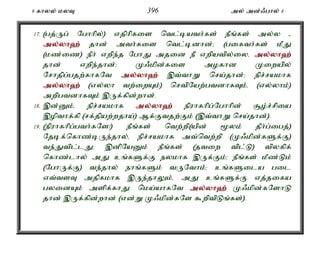 9 காலல் மலவு 396 அல் அன்ஃபால் 8
17. (பத்ருப் போரில்) எதிரிகளை வெட்டியவர்கள் நீங்கள் அல்ல -
அல்லாஹ் தான் அவர்களை வெட்டினான்; (பகைவர்கள் மீது
(மண்ணை) நீர் எறிந்த போது அதனை நீ எறியவில்லை, அல்லாஹ்
தான் எறிந்தான்; முஃமின்களை அழகான முறையில்
சோதிப்பதற்காகவே அல்லாஹ் இவ்வாறு செய்தான்; நிச்சயமாக
அல்லாஹ் (எல்லா வற்றையும்) செவியேற்பவனாகவும், (எல்லாம்)
அறிபவனாகவும் இருக்கின்றான்.
18. இன்னும், நிச்சயமாக அல்லாஹ் நிராகரிப்போரின் சூழ்ச்சியை
இழிவாக்கி (சக்தியற்றதாய்) ஆக்குவதற்கும் (இவ்வாறு செய்தான்).
19. (நிராகரிப்பவர்களே!) நீங்கள் வெற்றி(யின் மூலம் தீர்ப்பைத்)
தேடிக்கொண்டிருந்தால், நிச்சயமாக அவ்வெற்றி (முஃமின்களுக்கு)
வந்துவிட்டது; இனியேனும் நீங்கள் (தவறை விட்டு) விலகிக்
கொண்டால் அது உங்களுக்கு நலமாக இருக்கும்; நீங்கள் மீண்டும்
(போருக்கு) வந்தால் நாங்களும் வருவோம்; உங்களுடைய படை
எவ்வளவு அதிகமாக இருந்தாலும், அது உங்களுக்கு எத்தகைய
பலனையும் அளிக்காது மெய்யாகவே அல்லாஹ் முஃமின்களோடு
தான் இருக்கின்றான் (என்று முஃமின்களே கூறிவிடுங்கள்).